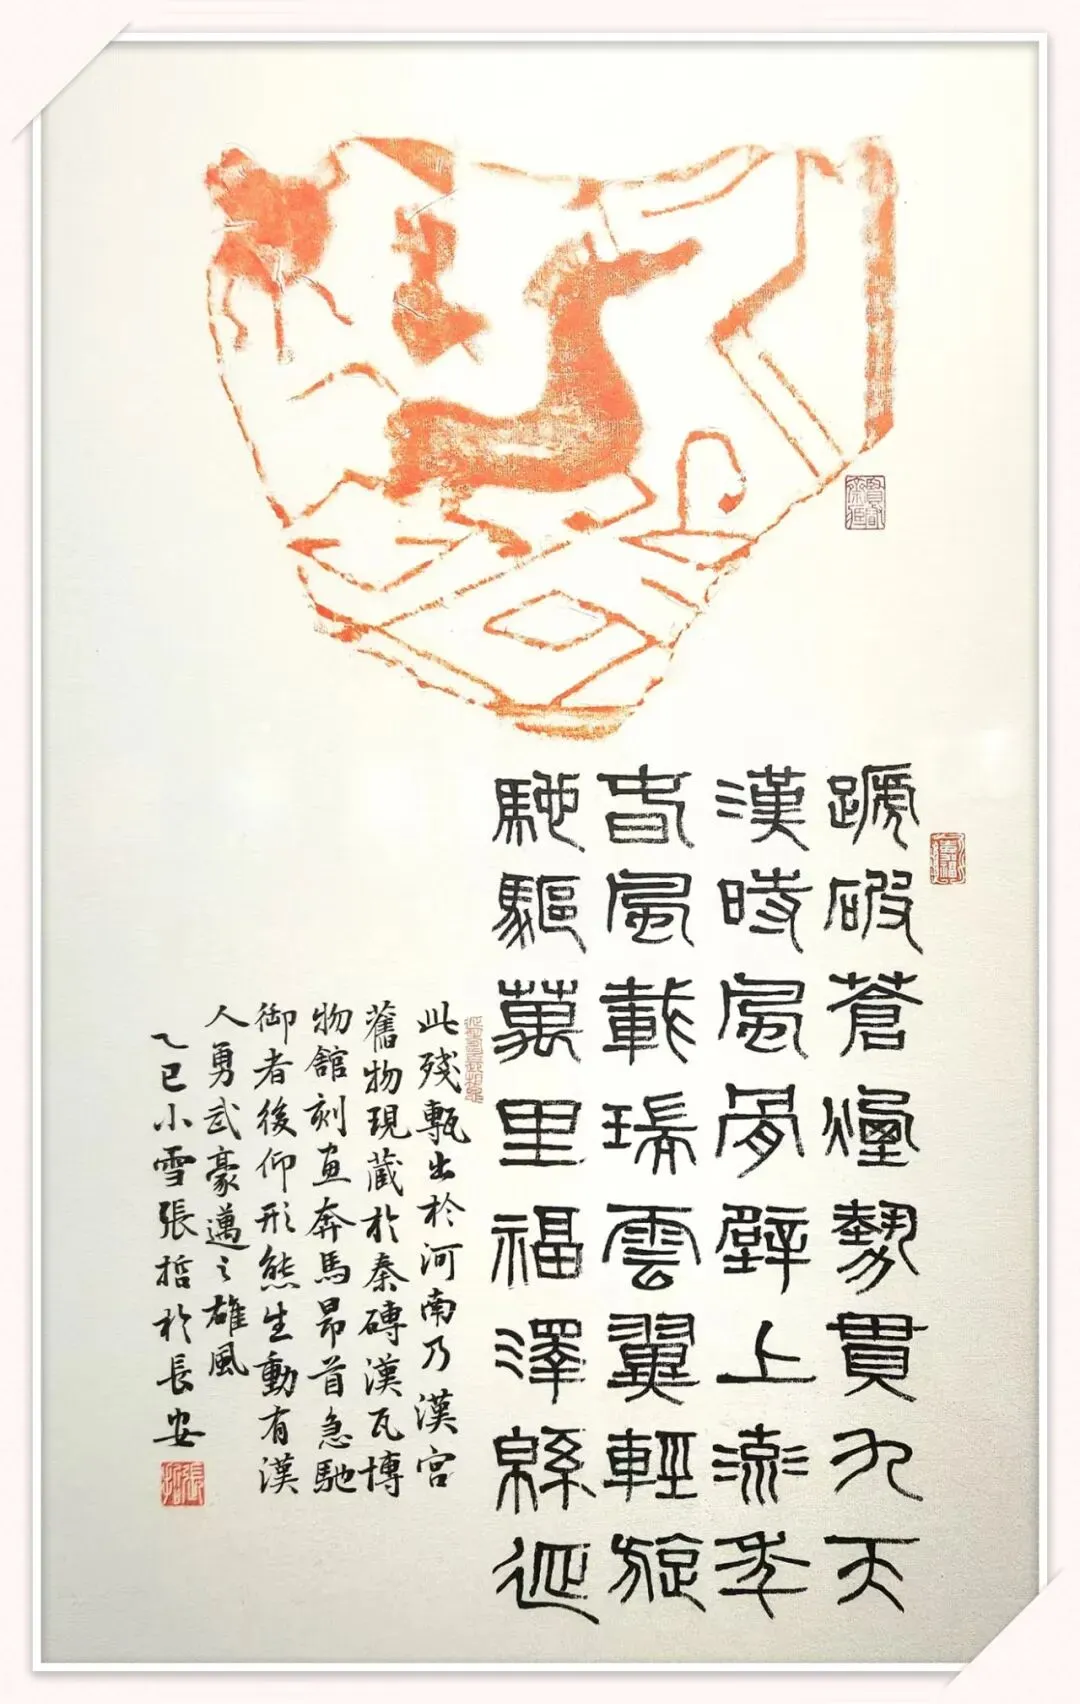 蹏破蒼煙勢貫九天
漢時風骨壁上流年
春風載瑞雲翼輕旋
馳驅萬里福澤綿延
此殘甎出於河南乃漢宮
舊物現藏於秦磚漢瓦博
物館刻畫奔馬昂首急馳
御者後仰形態生動有漢
人勇武豪邁之雄風
乙巳小雪張哲於長安
張哲